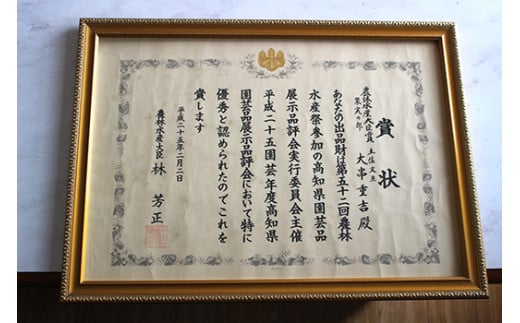 賞状
農林水産大臣賞
果実の部 土佐文旦
大串重吉殿
あなたの出品財は第五十二回農林
水産祭参加の高知県園芸品
展示品評会実行委員会主催
平成二十五園芸年度高知県
園芸品展示品評会において特に
優秀と認められたのでこれを
賞します
平成二十五年二月二日
農林水産大臣 林 芳正